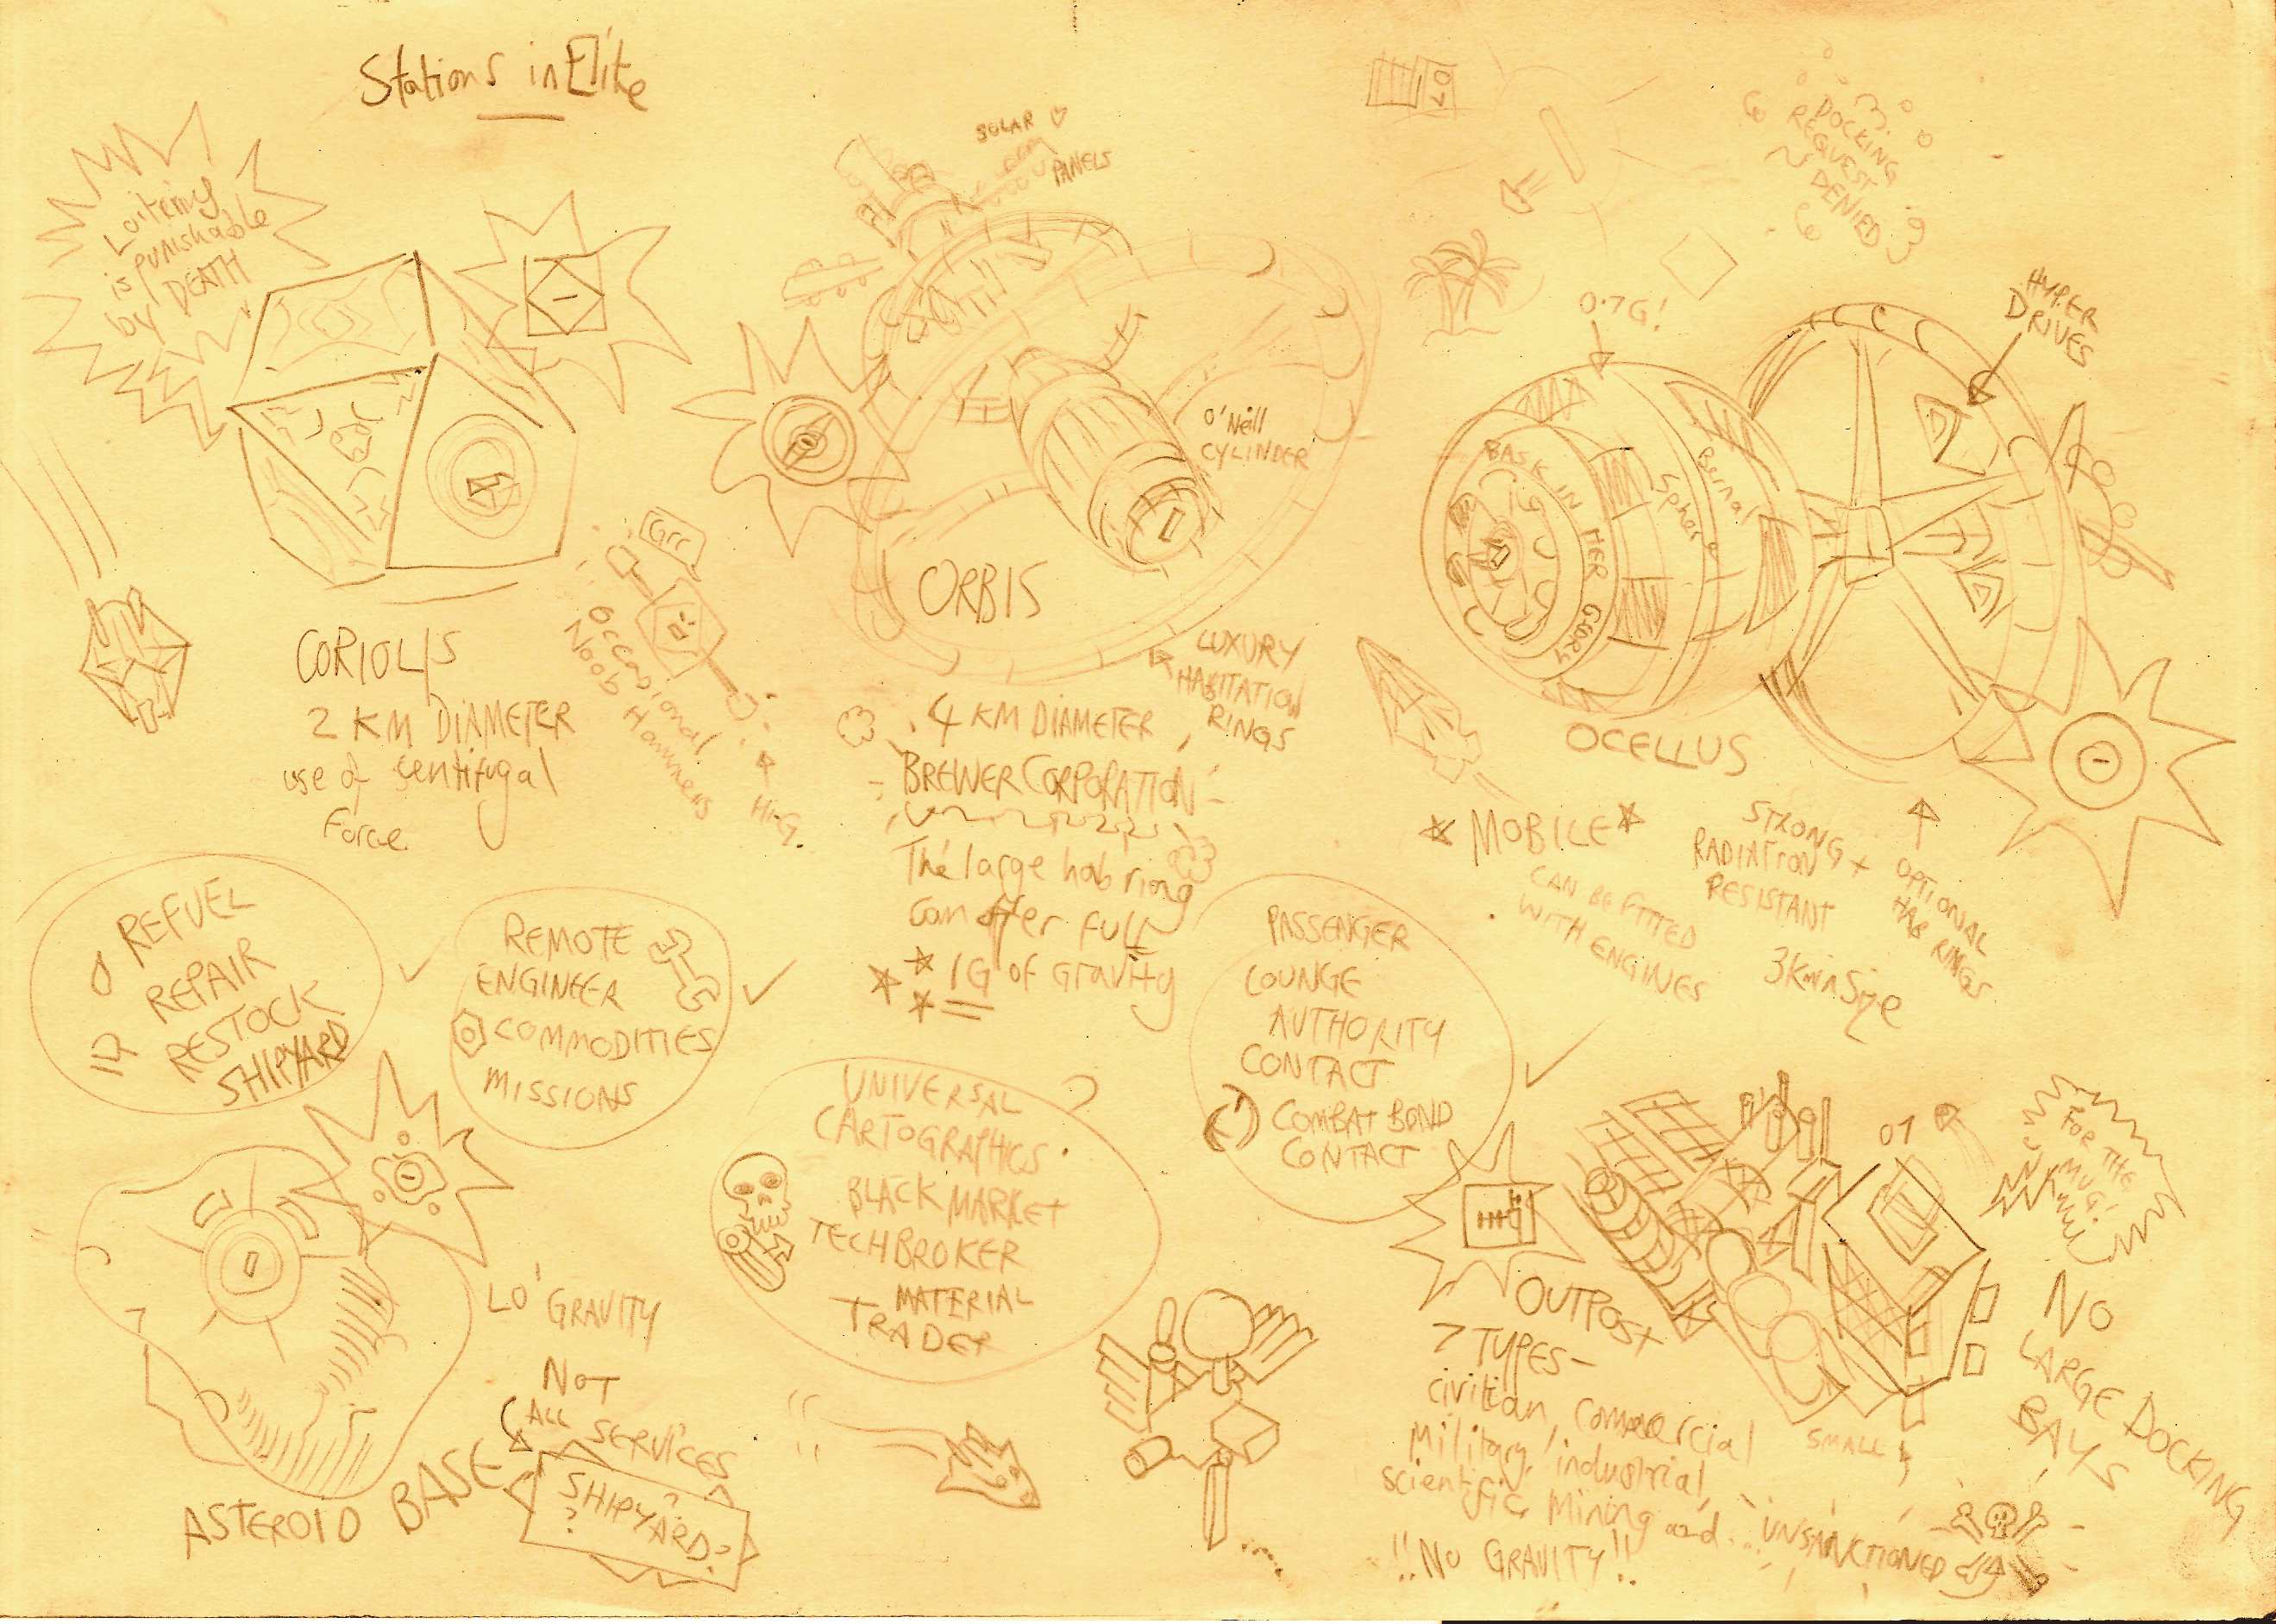 Stations in Elite
Loitering
is punishable
by DEATH
SOLAR
PANELS
07
DOCKING
REQUEST
DENIED
0.7G!
HYPER
DRIVES
O'Neill
CYLINDER
BASK IN HER GLORY
Bernal
Sphare
Grr
ORBIS
CORIOLIS
2 KM DIAMETER
use of sentifugal
Force
Occasional
Noob Hammers
HI-G.
LUXURY
HABITATION
RINGS
4 KM DIAMETER
BREWER CORPORATION
The large hab ring
can offer full
1G of gravity
OCELLUS
MOBILE
CAN BE FITTED
WITH ENGINES
STRONG +
RADIATION
RESISTANT
3Km in Size
OPTIONAL
HAB RINGS
REFUEL
REPAIR
RESTOCK
SHIPYARD
REMOTE
ENGINEER
COMMODITIES
MISSIONS
UNIVERSAL
CARTOGRAPHICS
BLACK MARKET
TECHBROKER
MATERIAL
TRADER
PASSENGER
LOUNGE
AUTHORITY
CONTACT
COMBAT BOND
CONTACT
LO' GRAVITY
NOT
ALL SERVICES
SHIPYARD?
?
ASTEROID BASE
01
FOR THE
MUG!
OUTPOST
7 TYPES-
civilian, commercial
Military, industrial,
scientific, Mining and... UNSANCTIONED
!!NO GRAVITY!!
SMALL
NO
LARGE DOCKING
BAYS